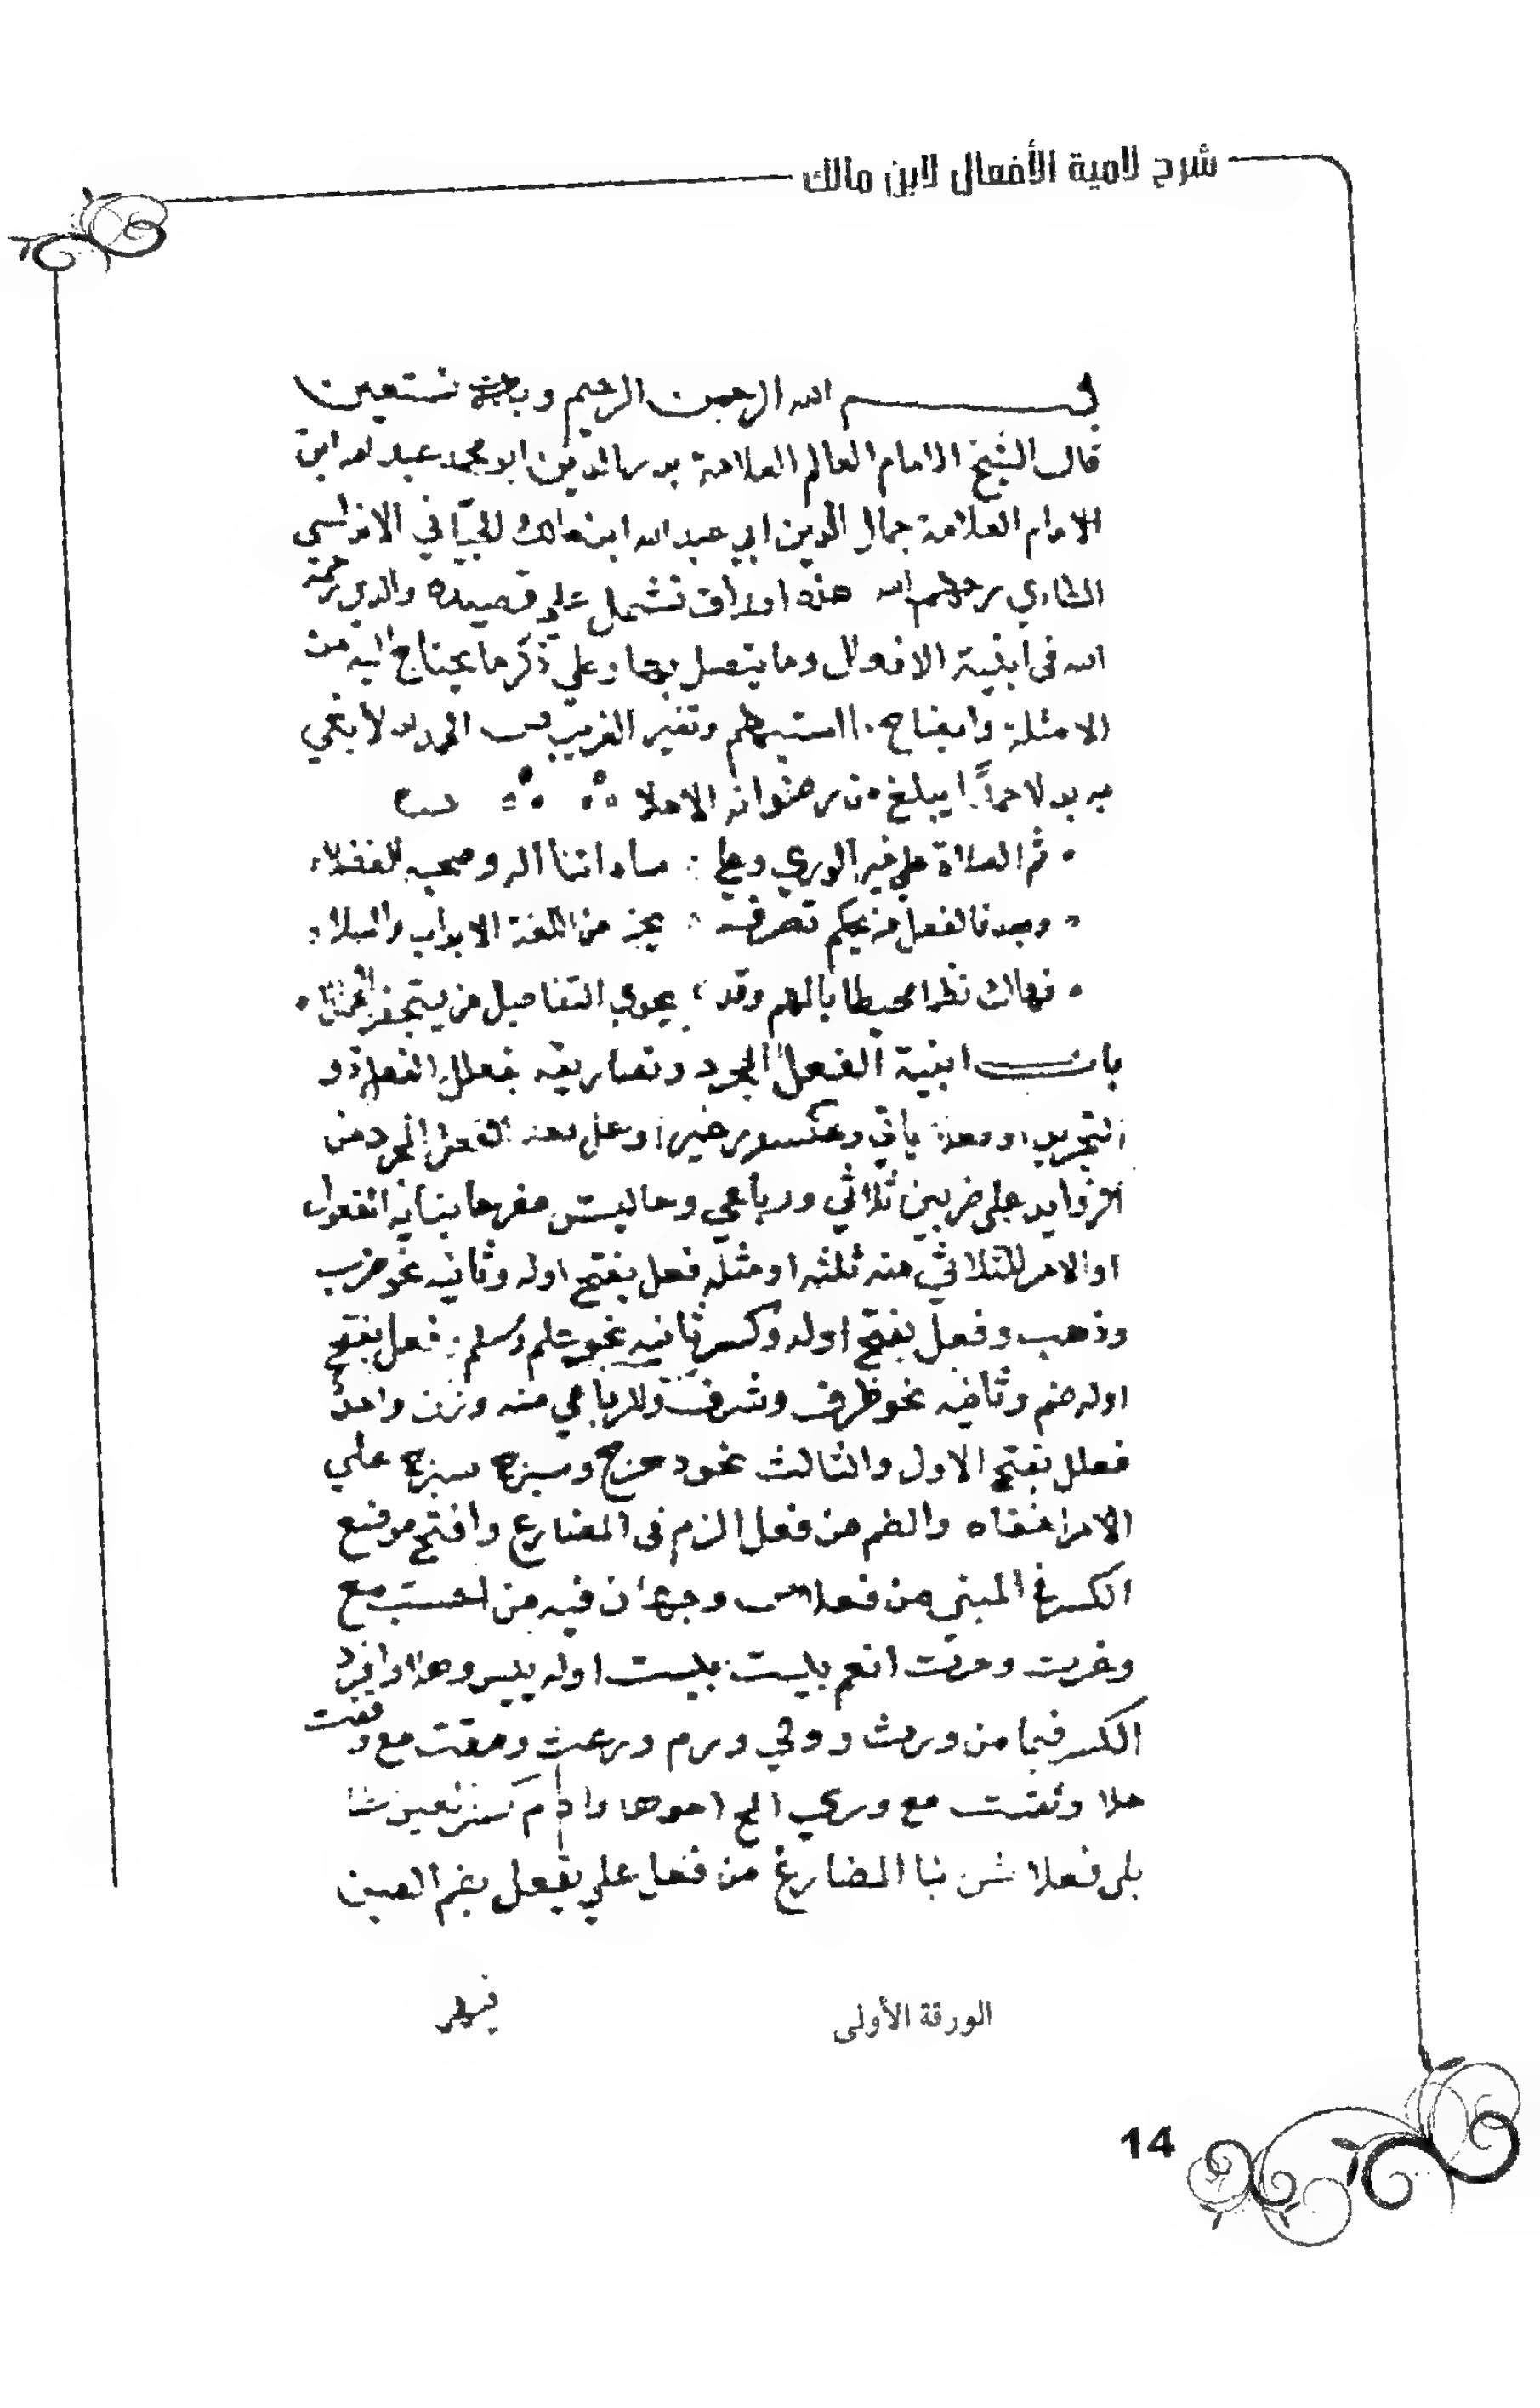 شرح لامية الأفعال لابن مالك
بسم الله الرحمن الرحيم وبه نستعين
قال الشيخ الامام العالم العلامة بدر الدين ابو محمد عبد الله ابن
الامام العلامة جمال الدين ابي عبد الله ابن مالك الجياني الاندلسي
الطاءي رحمهم الله هذه اوراق تشمل علي قصيده والدي رحمة
الله فى ابنية الافعال وما يتصل بها وعلي ذكر ما يحتاج اليه من
الامثلة وايضاح المستبهم وتفسير الغريب الحمد لله لا ابغي
به بدلا حمدًا يبلغ من رضوانه الاملا
ثم الصلاة علي خير الوري وعلي ساداتنا اله وصحبه الفضلاء
وبعد فالفعل من يحكم تصرفه يحز من اللغة الابواب والسبلا
فهاك نظما محيطا بالمهم وقد يحوي التفاصيل من يستحضر الجملا
باب ابنية الفعل المجرد وتصاريفه بفعلل الفعل ذو
التجريد او فعلا ياتي ومكسور عين او على الفعل المجرد من
الزوايد على ضربين ثلاثي ورباعي وما ليس مغيرها بنايه المفعول
او الامر للثلاثي منه ثلثه امثله فعل بفتح اوله وثانيه نحو ضرب
وذهب وفعل بفتح اوله وكسر ثانيه نحو علم وسلم وفعل بفتح
اوله ضم وثانيه نحو ظرف وشرف وللرباعي منه وزن واحد
فعلل بفتح الاول والثالث نحو دحرج وسبرج سبرج علي
الامر اخفاه والضم من فعل الزم فى المضارع وافتح موضع
الكسر فى المبني من فعلا وجهان فيه من احسب مع
وغرت وحرت انعم بئست يئست اوله يبس وهلا وافرد
الكسر فيما من ورث وولي ورم ورعت ومقت مع وفقت
حلا وثقت مع وري المخ احوها وادم كسر لعين مضا
يلى فعلا بنا المضارع من فعل علي يفعل بضم العين
فيهر
الورقة الأولى
14